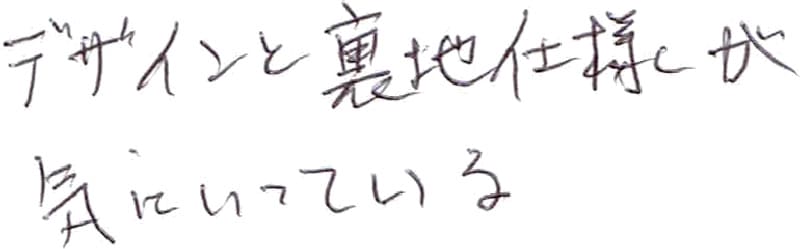 デザインと裏地仕様が
気にいっている